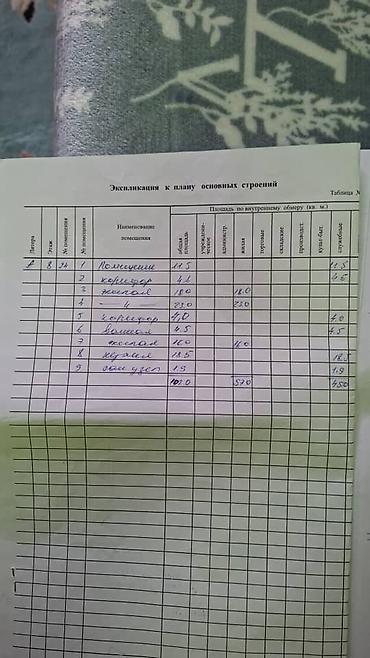 Экспликация к плану основных строений
Таблица №
Литера
Этаж
№ помещения
№ помещения
Наименование помещения
Площадь по внутреннему обмеру (кв. м.)
общая площадь
учрежденческое
администр.
жилая
торговые
складские
производст.
культ-быт.
служебные
8 24 1 Помещение 11.5 11.5
2 коридор 4.6
3 жилая 18.0 18.0
4 —"— 23.0 23.0
5 коридор 4.0 4.0
6 ванная 4.5 4.5
7 жилая 16.0 16.0
8 кухня 18.5 18.5
9 сан узел 1.9 1.9
102.0 57.0 45.0